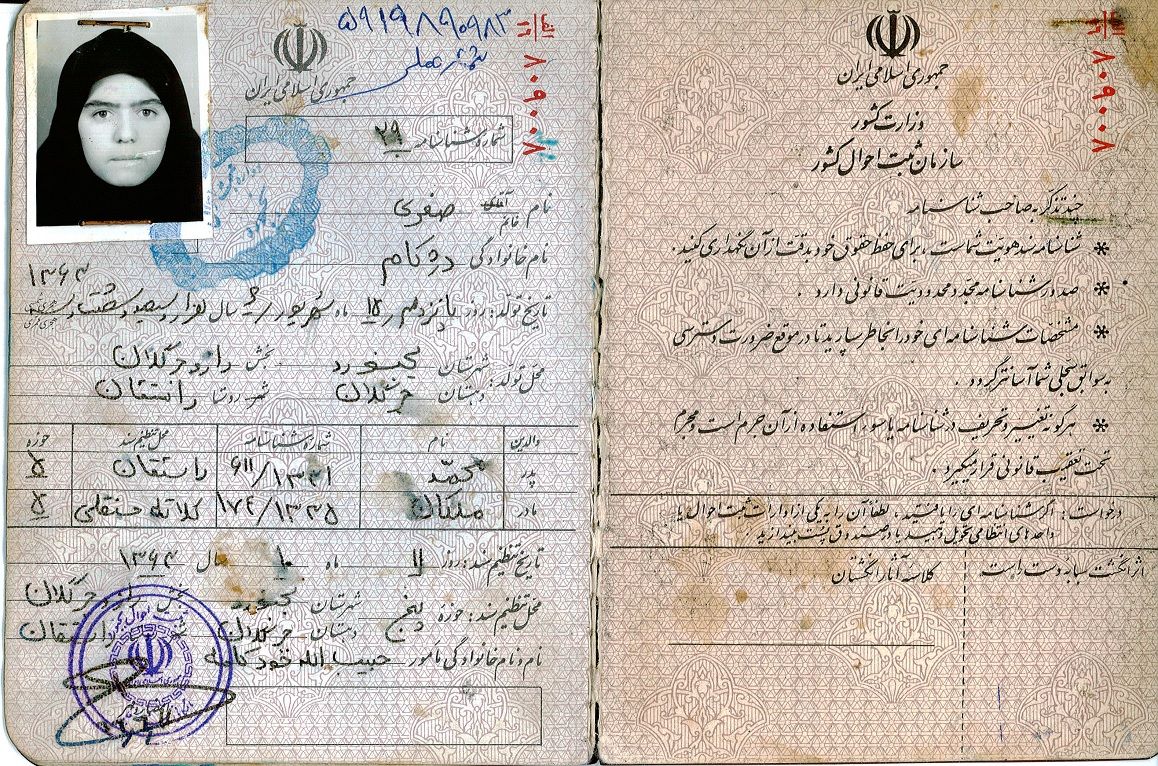 ۵۹۱۹۸۹۰۹۸۳
شماره ملی
جمهوری اسلامی ایران
شماره شناسنامه ۲۹
نام آقای خانم صغری
نام خانوادگی دژکام
۱۳۶۴
تاریخ تولد: روز پانزدهم ۱۵ ماه شهریور ۶ سال هزار و سیصد و شصت و
محل تولد: شهرستان بجنورد بخش راز و جرگلان
دهستان جرگلان شهر روستا راستقان
والدین نام شماره شناسنامه محل تنظیم سند حوزه
پدر محمد ۶۱۱/۱۳۲۱ راستقان ۵
مادر ملکان ۱۷۴/۱۳۳۵ کلاته حسنقلی ۵
تاریخ تنظیم سند: روز ۱۱ ماه ۱۰ سال ۱۳۶۴
محل تنظیم سند: حوزه پنج شهرستان بجنورد بخش راز و جرگلان
دهستان جرگلان راستقان
نام و نام خانوادگی مامور حبیب الله خودکامه
جمهوری اسلامی ایران
وزارت کشور
سازمان ثبت احوال کشور
چند تذکر به صاحب شناسنامه
* شناسنامه سند هویت شماست، برای حفظ حقوق خود بدقت از آن نگهداری کنید.
* صدور شناسنامه مجدد محدودیت قانونی دارد.
* مشخصات شناسنامه ای خود را بخاطر بسپارید تا در موقع ضرورت دسترسی
به سوابق سجلی شما آسانتر گردد.
* هرگونه تغییر و تحریف در شناسنامه یا سوء استفاده از آن جرم است و مجرم
تحت تعقیب قانونی قرار میگیرد.
درخواست: اگر شناسنامه ای را یافتید، لطفا آن را به یکی از ادارات ثبت احوال یا
واحدهای انتظامی تحویل دهید یا در صندوق پست بیندازید.
اثر انگشت سبابه دست راست
کلاسه آثار انگشتان